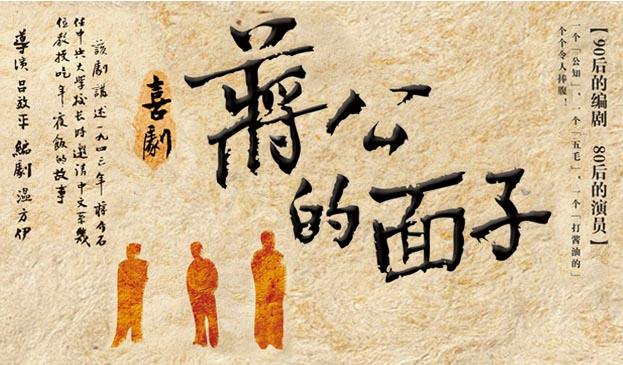 【90后的编剧 80后的演员】
一个「公知」，一个「五毛」，一个「打酱油的」
个个令人捧腹！
蔣公
的面子
喜劇
該劇講述一九四三年蔣介石
任中央大學校长時邀請中文系幾
位教授吃年夜飯的故事
導演 吕效平 編劇 温方伊